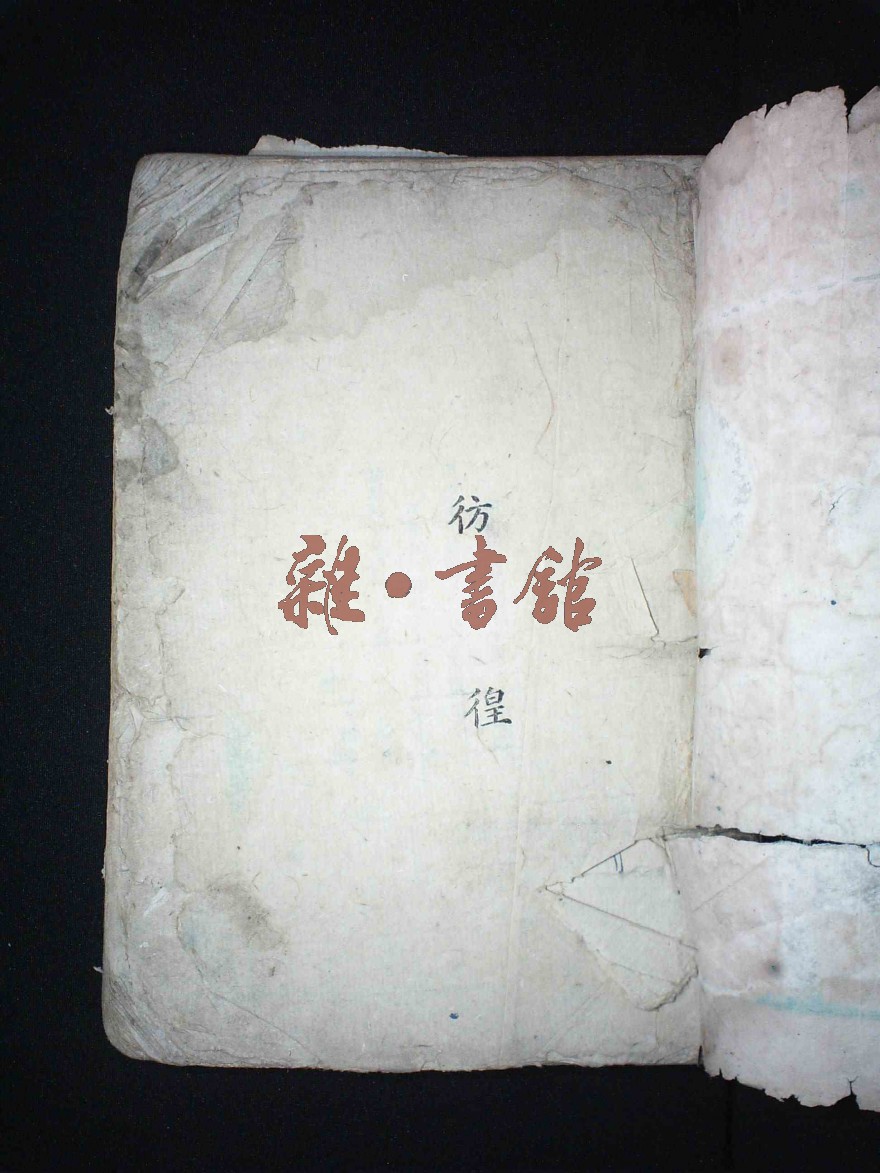 彷徨
雜·書館